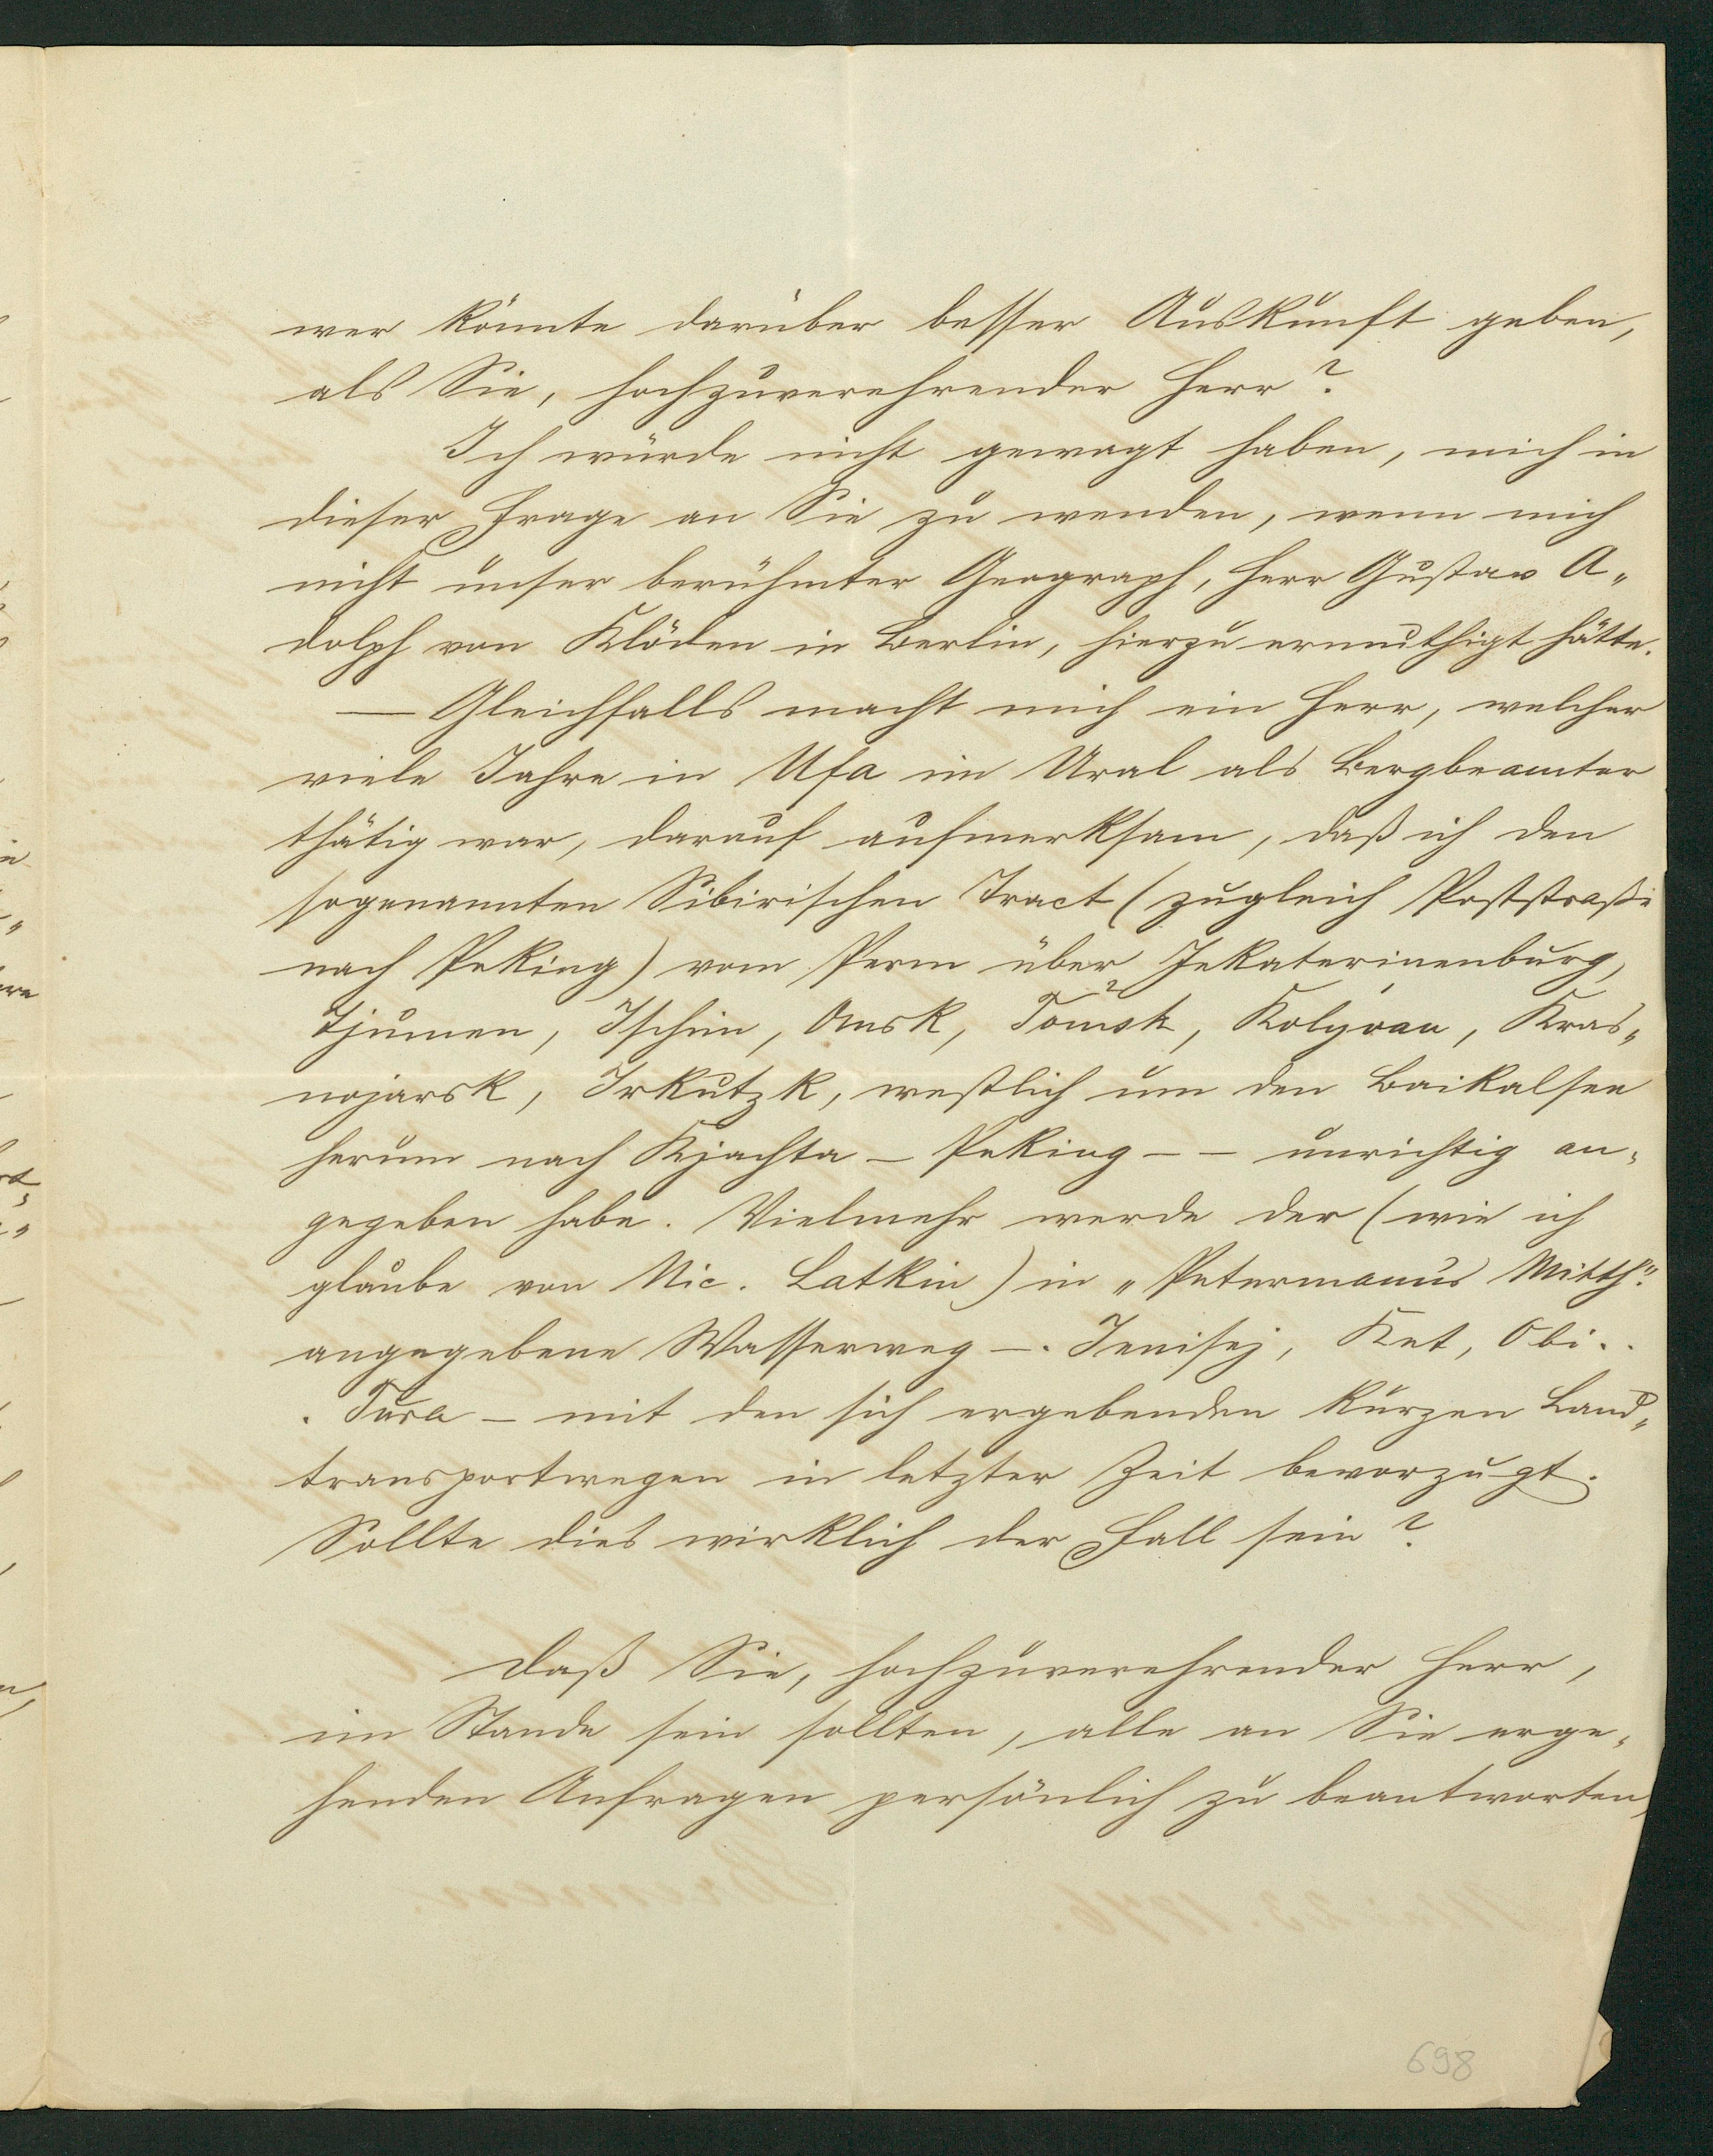 wer könnte darüber besser Auskunft geben,
als Sie, hochzuverehrender Herr?
Ich würde nicht gewagt haben, mich in
dieser Frage an Sie zu wenden, wenn mich
nicht unser berühmter Geograph, Herr Gustav A„
dolph von Klöden in Berlin, hierzu ermuthigt hätte.
— Gleichfalls macht mich ein Herr, welcher
viele Jahre in Ufa im Ural als Bergbeamter
thätig war, darauf aufmerksam, daß ich den
sogenannten Sibirischen Tract (zugleich Poststraße
nach Peking) vom Perm über Jekaterinenburg,
Tjumen, Ischim, Omsk, Tomsk, Kolývan, Kras„
nojarsk, Irkutzk, westlich um den Baikalsee
herum nach Kjachta – Peking – – unrichtig an„
gegeben habe. Vielmehr werde der (wie ich
glaube von Nic. Latkin) in „Petermanns Mitth."
angegebene Wasserweg –. Jenisej, Ket, Obi..
. Tura – mit den sich ergebenden kurzen Land„
transportwegen in letzter Zeit bevorzugt.
Sollte dies wirklich der Fall sein?
Daß Sie, hochzuverehrender Herr,
im Stande sein sollten, alle an Sie erge„
henden Anfragen persönlich zu beantworten,
698